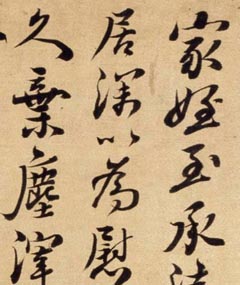 家姪至承
居深以為慰
久棄塵滓